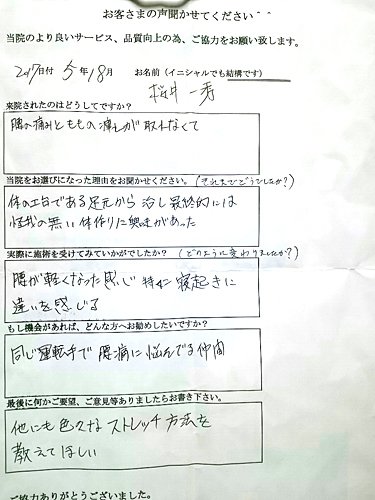 お客さまの声聞かせてください＾＾
当院のより良いサービス、品質向上の為、ご協力をお願い致します。
2017日付 5年18月 お名前（イニシャルでも結構です）
桜井 一秀
来院されたのはどうしてですか？
腰の痛みとももの凍しが取れなくて
当院をお選びになった理由をお聞かせください。（それまでどうでしたか？）
体の土台である足元から治し最終的には
怪我の無い体作りに興味があった
実際に施術を受けてみていかがでしたか？（どのように変わりましたか？）
腰が軽くなった感じ 特に寝起きに
違いを感じる
もし機会があれば、どんな方へお勧めしたいですか？
同じ運転手で腰痛に悩んでる仲間
最後に何かご要望、ご意見等ありましたらお書き下さい。
他にも色々なストレッチ方法を
教えてほしい
ご協力ありがとうございました。